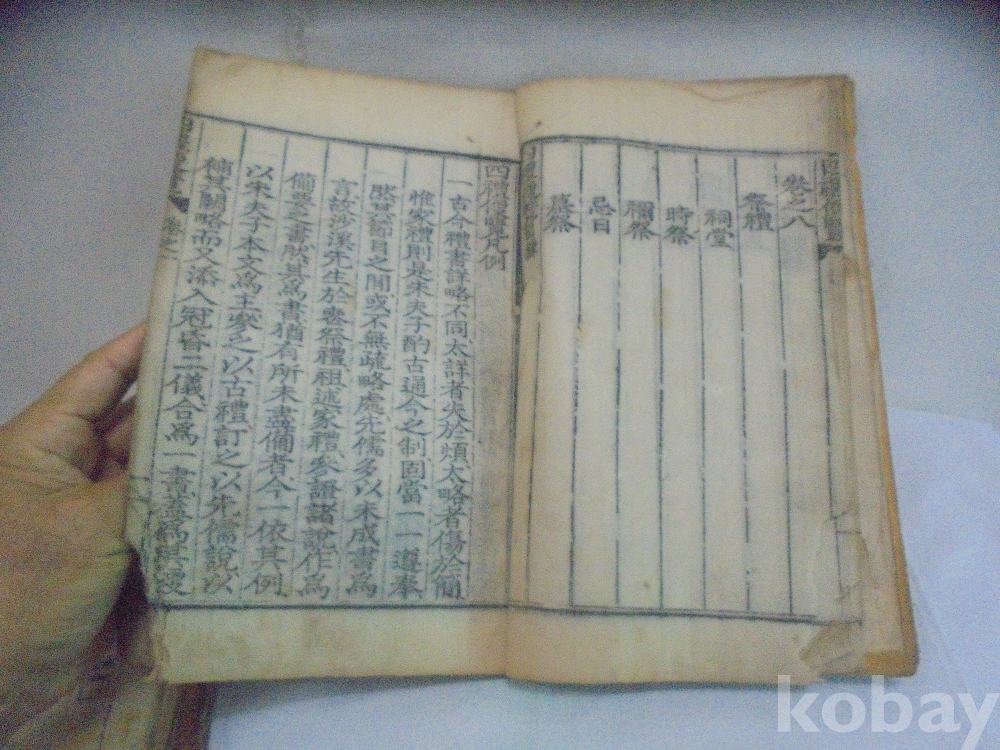 卷之八
祭禮
祠堂
時祭
禰祭
忌日
墓祭
四禮便覽凡例
一古今禮書詳略不同太詳者失於煩太略者傷於簡
惟家禮則是朱夫子酌古通今之制固當一一遵奉
然其節目之間或不無疏略處先儒多以未成書爲
言故沙溪先生於喪祭禮祖述家禮參證諸說作爲
備要之書然其爲書猶有所未盡備者今一依其例
以朱夫子本文爲主參之以古禮訂之以先儒說以
補其闕略而又添入冠昏二儀合爲一書蓋爲其
kobay